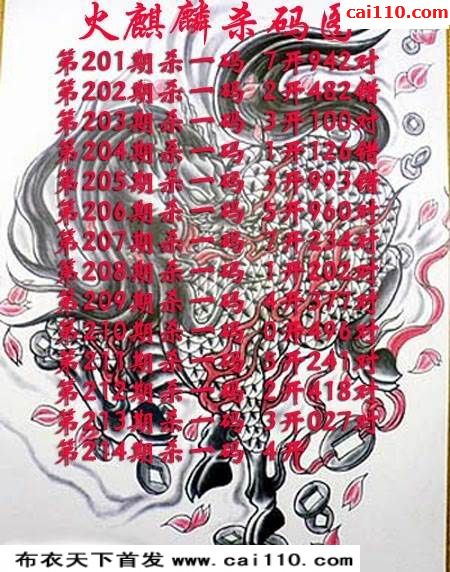 cai110.com
火麒麟杀码区
第201期杀一码 7开942对
第202期杀一码 2开482错
第203期杀一码 3开100对
第204期杀一码 1开126错
第205期杀一码 3开993错
第206期杀一码 5开960对
第207期杀一码 7开234对
第208期杀一码 1开202对
第209期杀一码 4开377对
第210期杀一码 0开496对
第211期杀一码 5开241对
第212期杀一码 2开418对
第213期杀一码 3开027对
第214期杀一码 4开
布衣天下首发 www.cai110.com